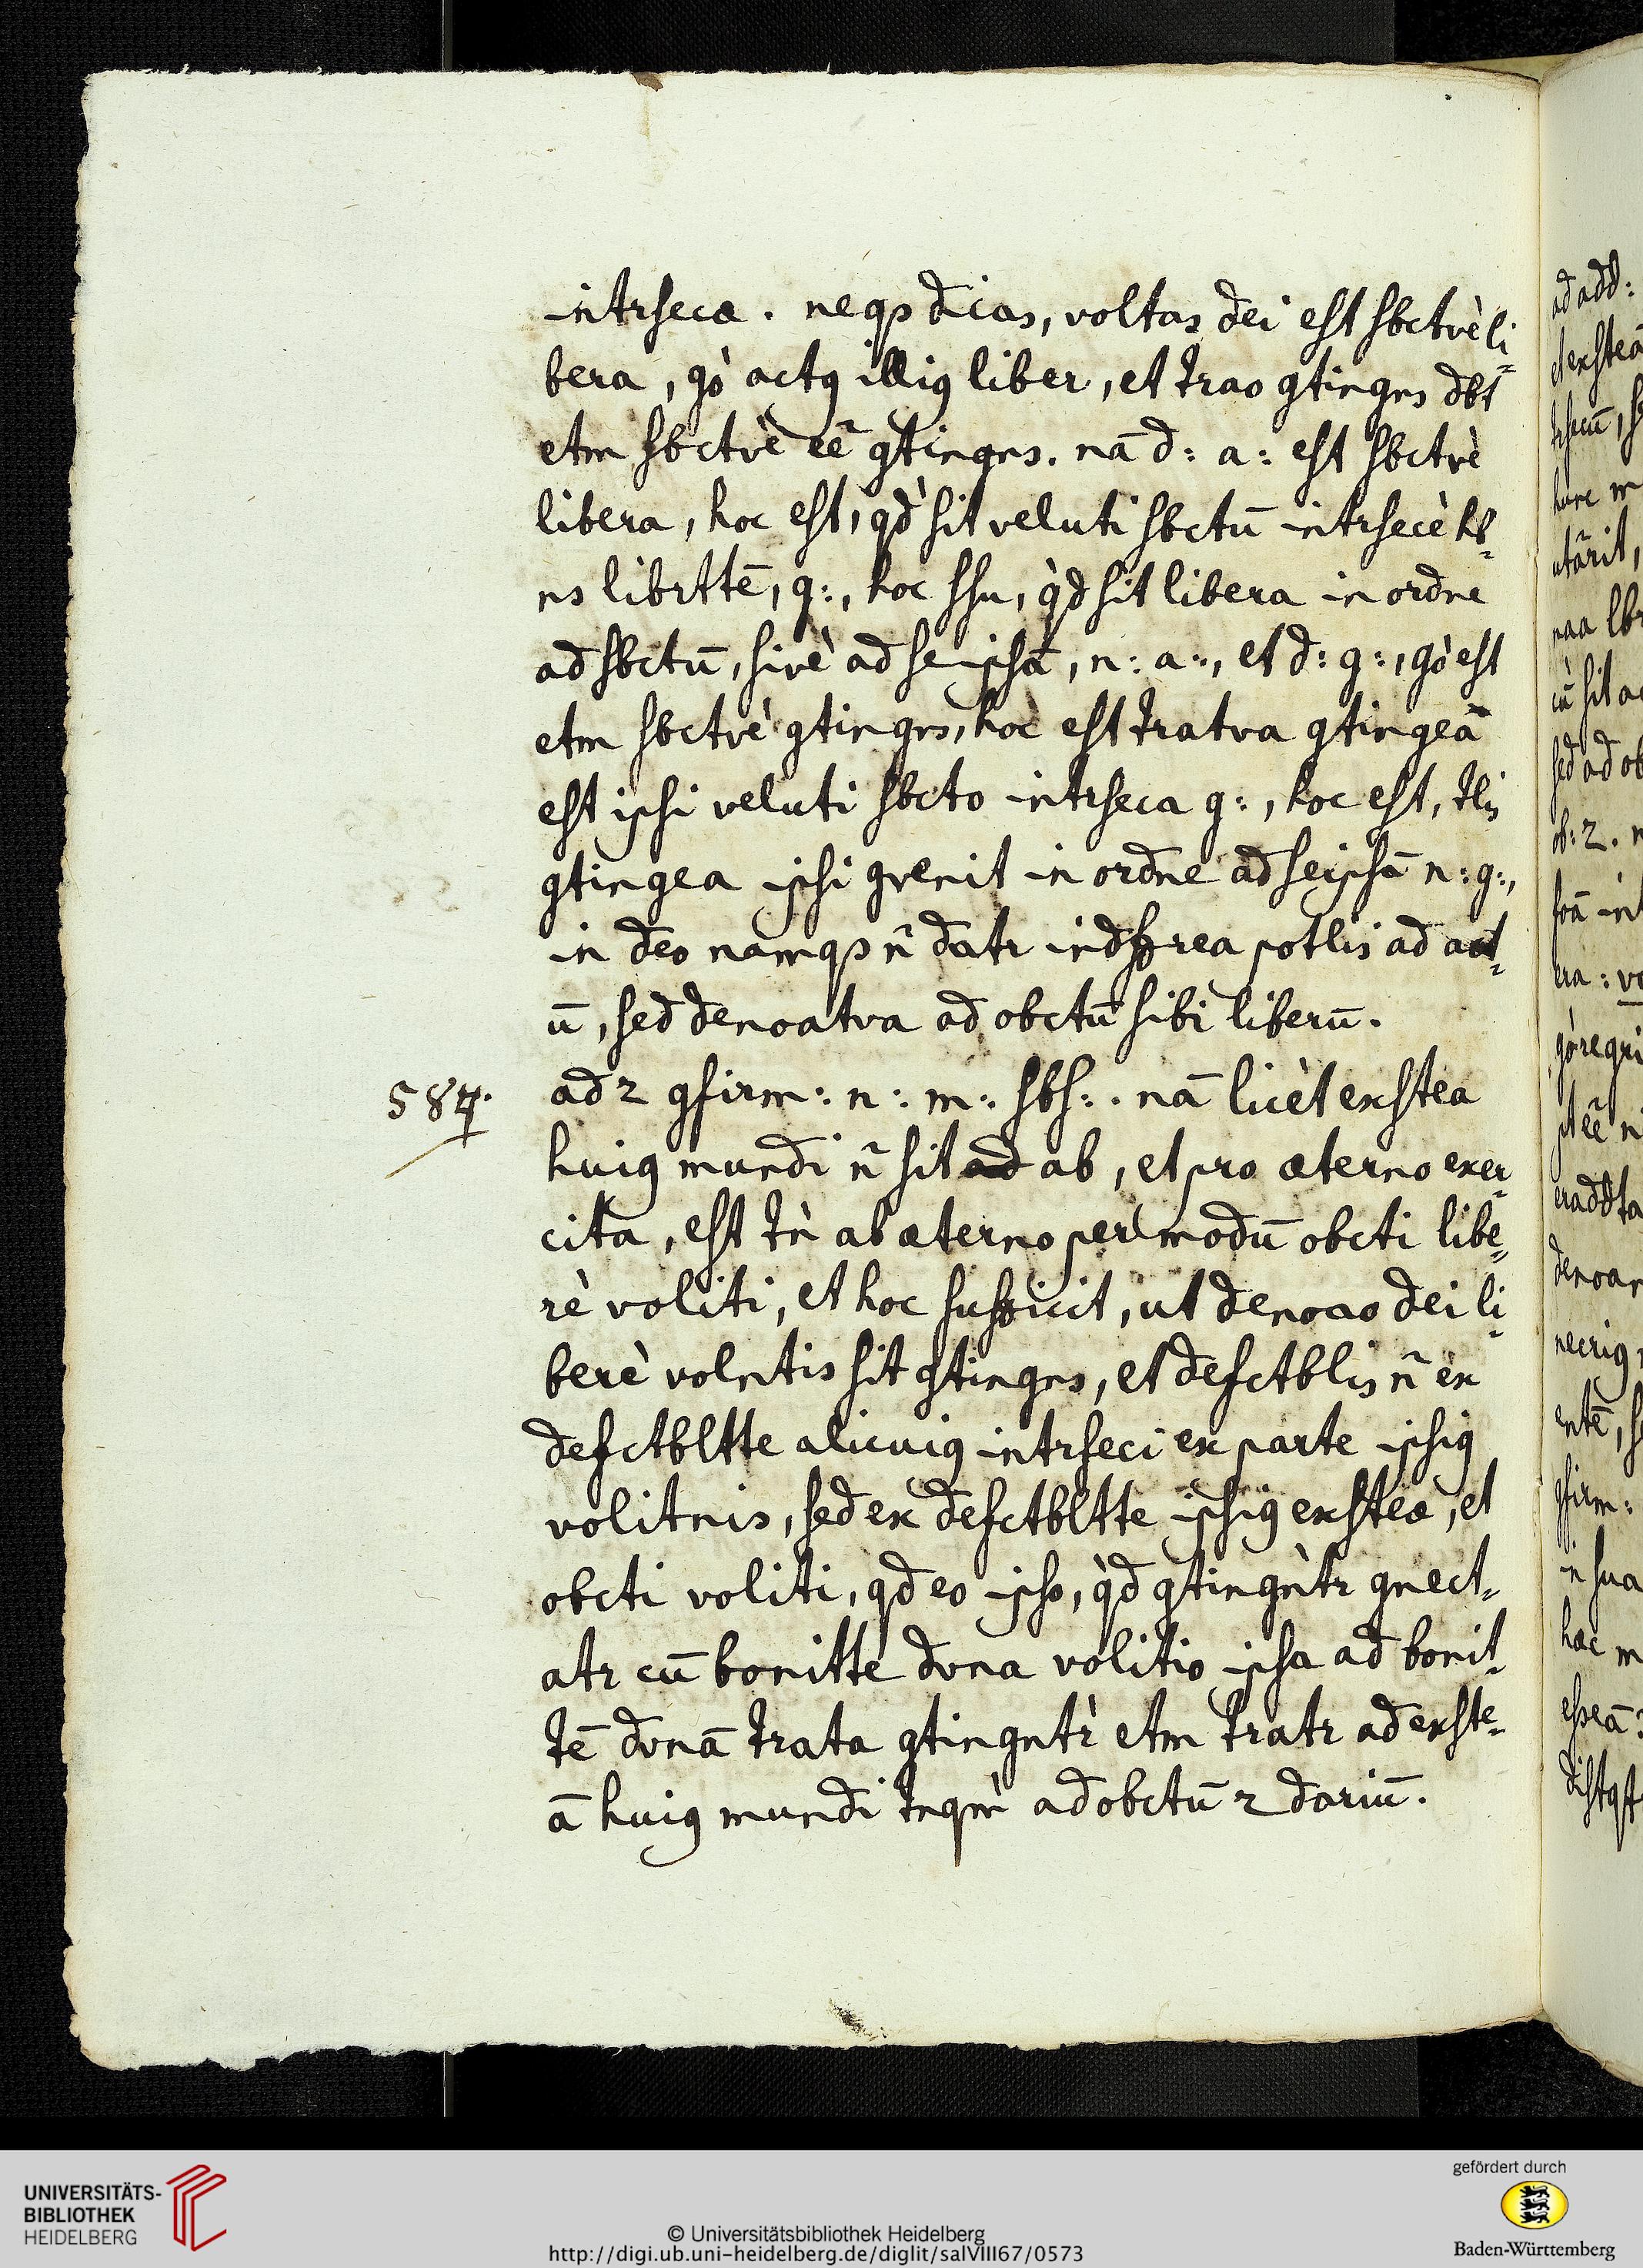 intrsecæ. neqꝫ dicas, voltas dei est sbctvè li-
bera, gò actꝰ illiꝰ liber, et trao gtingns dbt
etm sbctvè eẽ gtingns. nã d: a: est sbctvè
libera, hoc est, qd̀ sit veluti sbctũ intrsecè hb-
ns librttẽ, g:, hoc ssu, q̀d sit libera in ordne
ad sbctũ, sivè ad seipsã, n: a:, et d: g:, gò est
etm sbctvè gtingns, hoc est tratva gtingeã
est ipsi veluti sbcto intrseca g:, hoc est, tlis
gtingea ipsi gvenit in ordne ad seipsã n: g:,
in deo namqꝫ ñ datr indffrea potlis ad act-
ũ, sed denoatva ad obctũ sibi liberũ.
587. ad 2 gfirm: n: m: sbs:. nã licèt exstea
huiꝰ mundi ñ sit ab, et pro æterno exer-
cita, est tǹ ab æterno per modũ obcti libe-
rè voliti, et hoc sufficit, ut denoao dei li-
berè volntis sit gtingns, et defctblis ñ ex
defctbltte alicuiꝰ intrseci ex parte ipsiꝰ
volitnis, sed ex defctbltte ipsiꝰ exsteæ, et
obcti voliti, qd eo ipso, q̀d gtingǹtr gnect-
atr cũ bonitte dvna volitio ipsa ad bonit-
tẽ dvnã trata gtingntr̀ etm tratr ad exste-
ã huiꝰ mundi tnqm̀ ad obctũ 2 dariũ.
ad add:
hunc
sed ad ob
ob: 2.
gfirm:
in sua
hæc
UNIVERSITÄTS-
BIBLIOTHEK
HEIDELBERG
© Universitätsbibliothek Heidelberg
http://digi.ub.uni-heidelberg.de/diglit/salVIII67/0573
gefördert durch
Baden-Württemberg